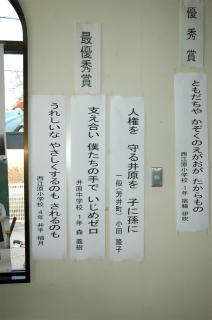 優秀賞
ともだちや かぞくのえがおが たからもの
西江原小学校 1年
最優秀賞
人権を 守る井原を 子に孫に
一般(芳井町) 小田 隆子
支え合い 僕たちの手で いじめゼロ
井原中学校 1年 森 義樹
うれしいな やさしくするのも されるのも
西江原小学校 4年 井手